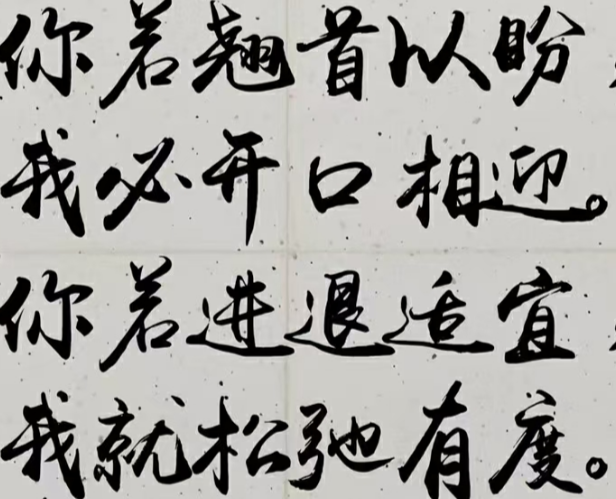 你若翘首以盼，
我必开口相迎。
你若进退适宜，
我就松弛有度。